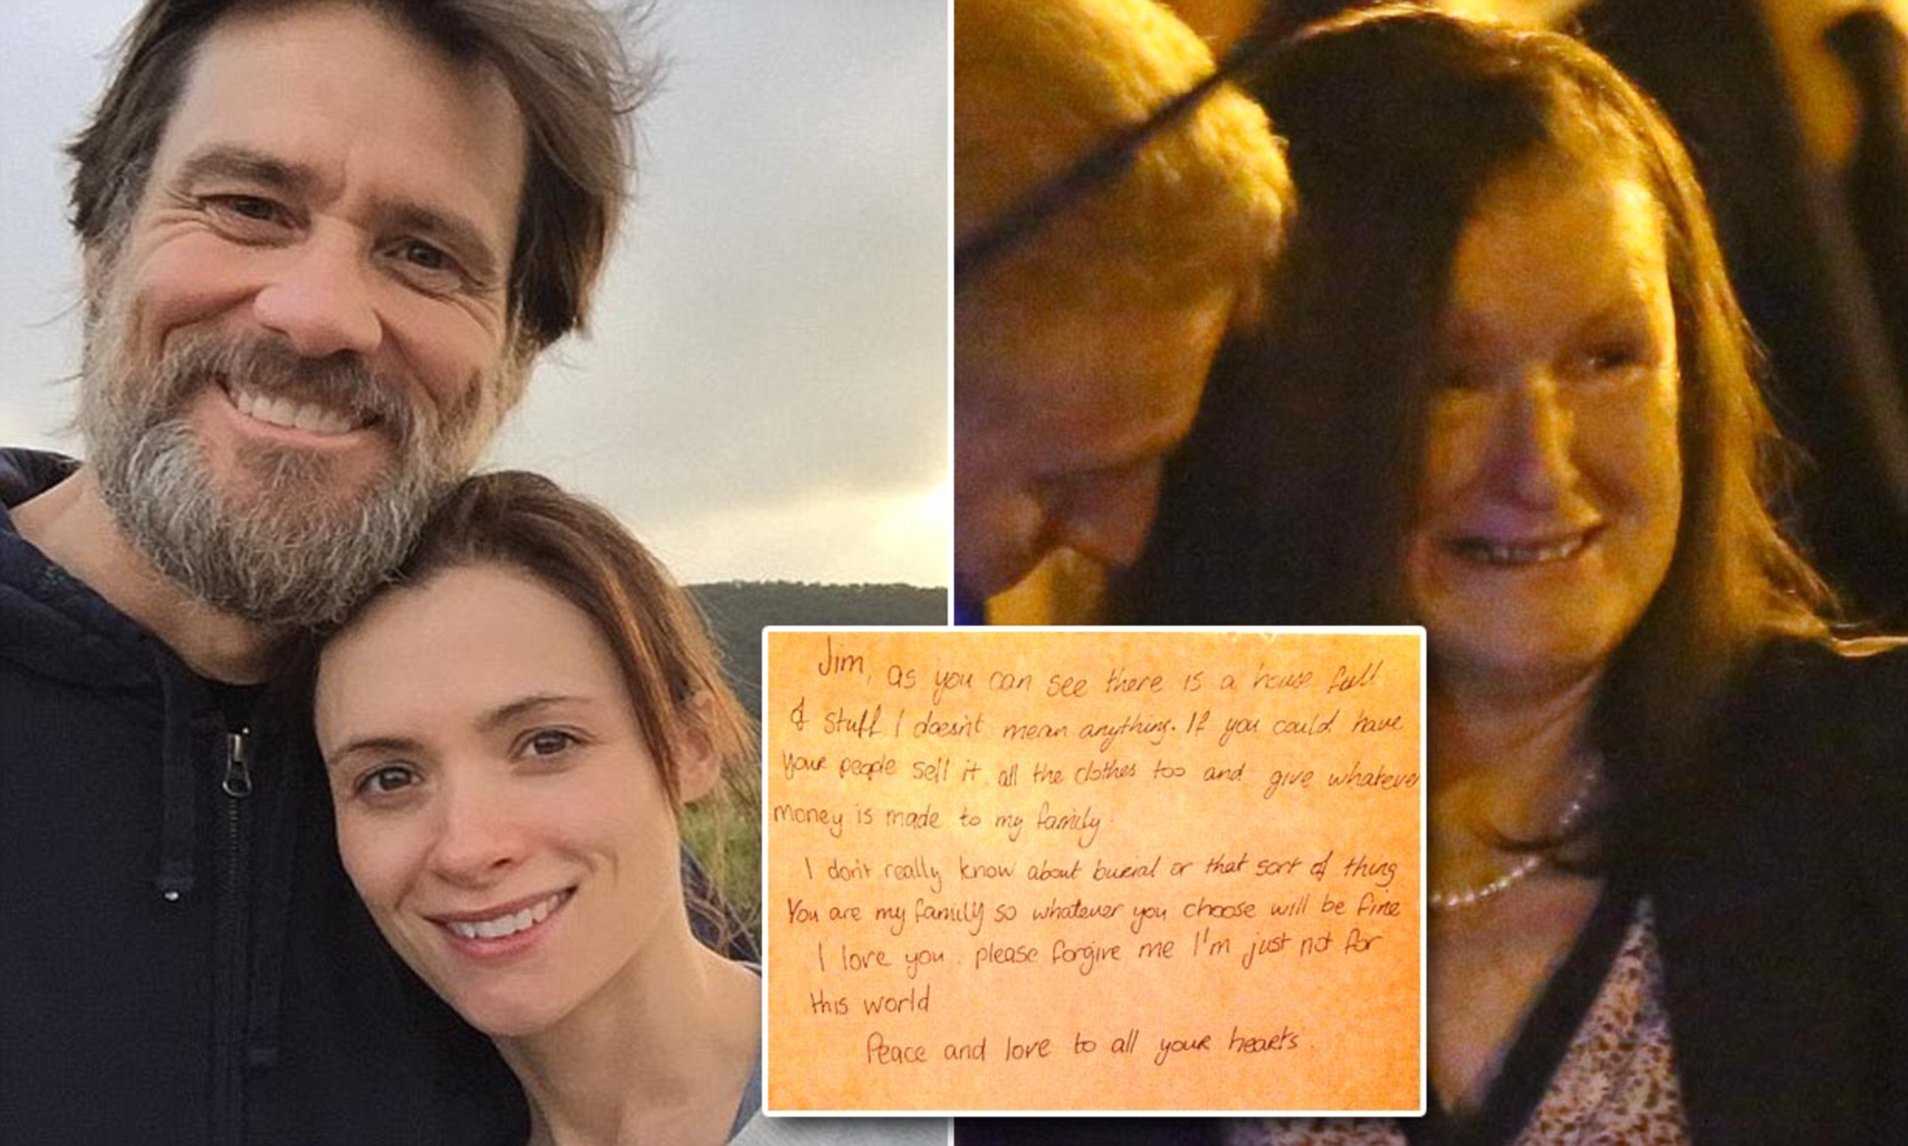 Jim, as you can see there is a house full
of stuff / doesn't mean anything. If you could have
your people sell it all the clothes too and give whatever
money is made to my family.
I don't really know about burial or that sort of thing
You are my family so whatever you choose will be fine
I love you. please forgive me I'm just not for
this world
Peace and love to all your hearts.